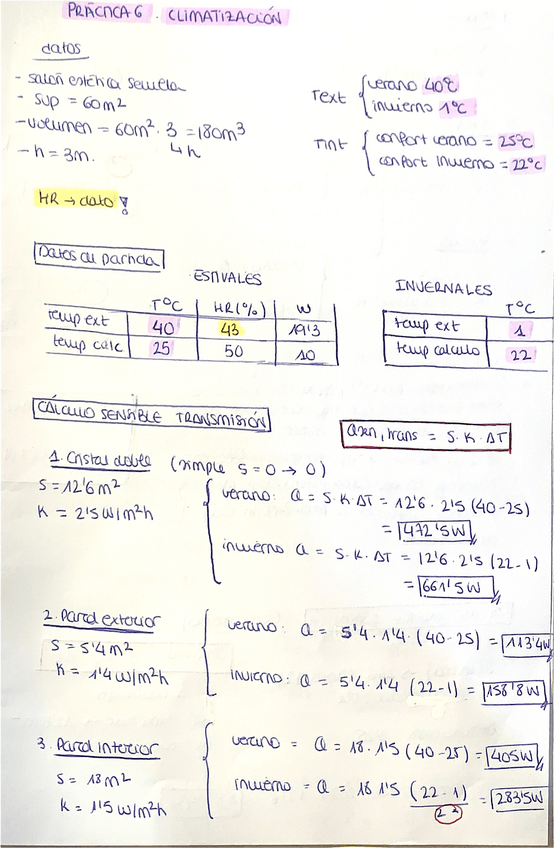 PRÁCTICA 6. CLIMATIZACIÓN
datos
- salón estética Sevilla
- sup = 60m²
- volumen = 60m² · 3 = 180m³
4h
- h = 3m.
Text { verano 40ºC
invierno 1ºC
Tint { confort verano = 25ºC
confort invierno = 22ºC
HR → dato !
Datos de partida
ESTIVALES
TºC HR(%) W
temp ext 40 43 19'3
temp calc 25 50 10
INVERNALES
TºC
temp ext 1
temp calculo 22
CÁLCULO SENSIBLE TRANSMISIÓN
Qsen, trans = S · K · ΔT
1. Cristal doble (simple S = 0 → 0)
S = 12'6 m²
K = 2'5 W/m²h
verano: Q = S · K · ΔT = 12'6 · 2'5 (40 - 25)
= 472'5W
invierno Q = S · K · ΔT = 12'6 · 2'5 (22 - 1)
= 661'5W
2. Pared exterior
S = 5'4 m²
K = 1'4 W/m²h
verano: Q = 5'4 · 1'4 · (40 - 25) = 113'4W
invierno: Q = 5'4 · 1'4 (22 - 1) = 158'8W
3. Pared interior
S = 18 m²
K = 1'5 W/m²h
verano = Q = 18 · 1'5 (40 - 25) = 405W
invierno = Q = 18 1'5 (22 - 1) = 283'5W
2